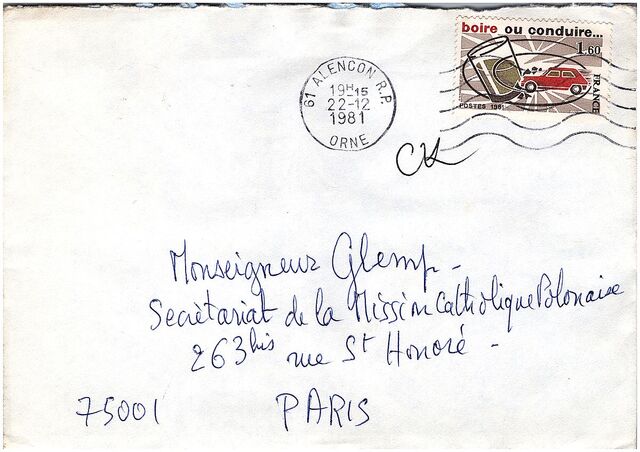 boire ou conduire...
1,60
FRANCE
POSTES 1981
61 ALENCON R.P.
19H15
22-12
1981
ORNE
CK
Monseigneur Glemp -
Secrètariat de la Mission Catholique Polonaise
263 bis rue St Honoré -
75001 PARIS